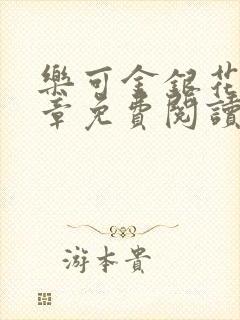 樂可金銀花
章免費閱讀
游本貴